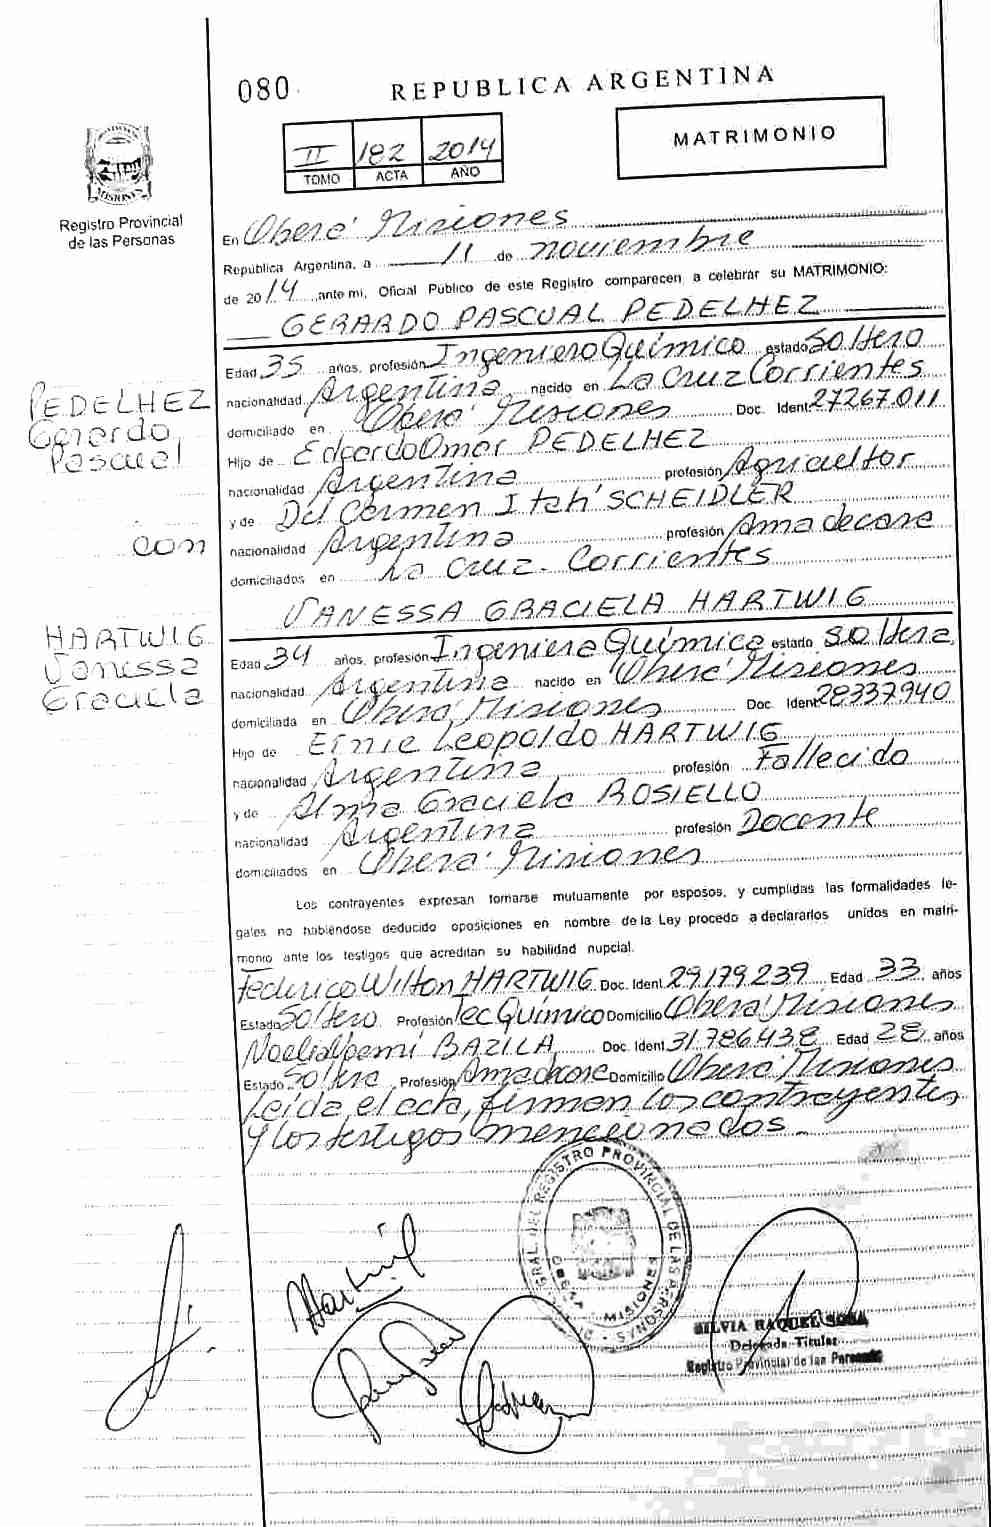 080
REPUBLICA ARGENTINA
II 182 2014
TOMO ACTA AÑO
MATRIMONIO
MISIONES
Registro Provincial
de las Personas
En Oberá Misiones
República Argentina, a 11 de noviembre
de 2014 ante mi, Oficial Público de este Registro comparecen a celebrar su MATRIMONIO:
GERARDO PASCUAL PEDELHEZ
Edad 35 años, profesión Ingeniero Químico estado Soltero
nacionalidad Argentina nacido en La Cruz Corrientes
domiciliado en Oberá Misiones Doc. Ident. 27267.011
Hijo de Edgardo Omar PEDELHEZ
nacionalidad Argentina profesión Agricultor
y de Del Carmen Itatí SCHEIDLER
nacionalidad Argentina profesión Ama de casa
domiciliados en La Cruz - Corrientes
PEDELHEZ
Gerardo
Pascual
con
HARTWIG
Vanessa
Graciela
VANESSA GRACIELA HARTWIG
Edad 34 años, profesión Ingeniera Química estado soltera
nacionalidad Argentina nacido en Oberá Misiones
domiciliada en Oberá Misiones Doc. Ident. 28337.940
Hijo de Ernie Leopoldo HARTWIG
nacionalidad Argentina profesión Fallecido
y de Alma Graciela ROSIELLO
nacionalidad Argentina profesión Docente
domiciliados en Oberá Misiones
Los contrayentes expresan tomarse mutuamente por esposos, y cumplidas las formalidades le-
gales no habiéndose deducido oposiciones en nombre de la Ley procedo a declararlos unidos en matri-
monio ante los testigos que acreditan su habilidad nupcial.
Federico Wilton HARTWIG Doc. Ident. 29.179.239 Edad 33 años
Estado Soltero Profesión Tec Químico Domicilio Oberá Misiones
Noelia Noemí BAZILA Doc. Ident. 31.786.438 Edad 28 años
Estado Soltera Profesión Ama de casa Domicilio Oberá Misiones
Leída el acta, firman los contrayentes,
y los testigos mencionados.-
DIR. GRAL. DEL REGISTRO PROVINCIAL DE LAS PERSONAS
OBERA - MISIONES
Hartwig
SILVIA RAQUEL SOSA
Delegada Titular
Registro Provincial de las Personas